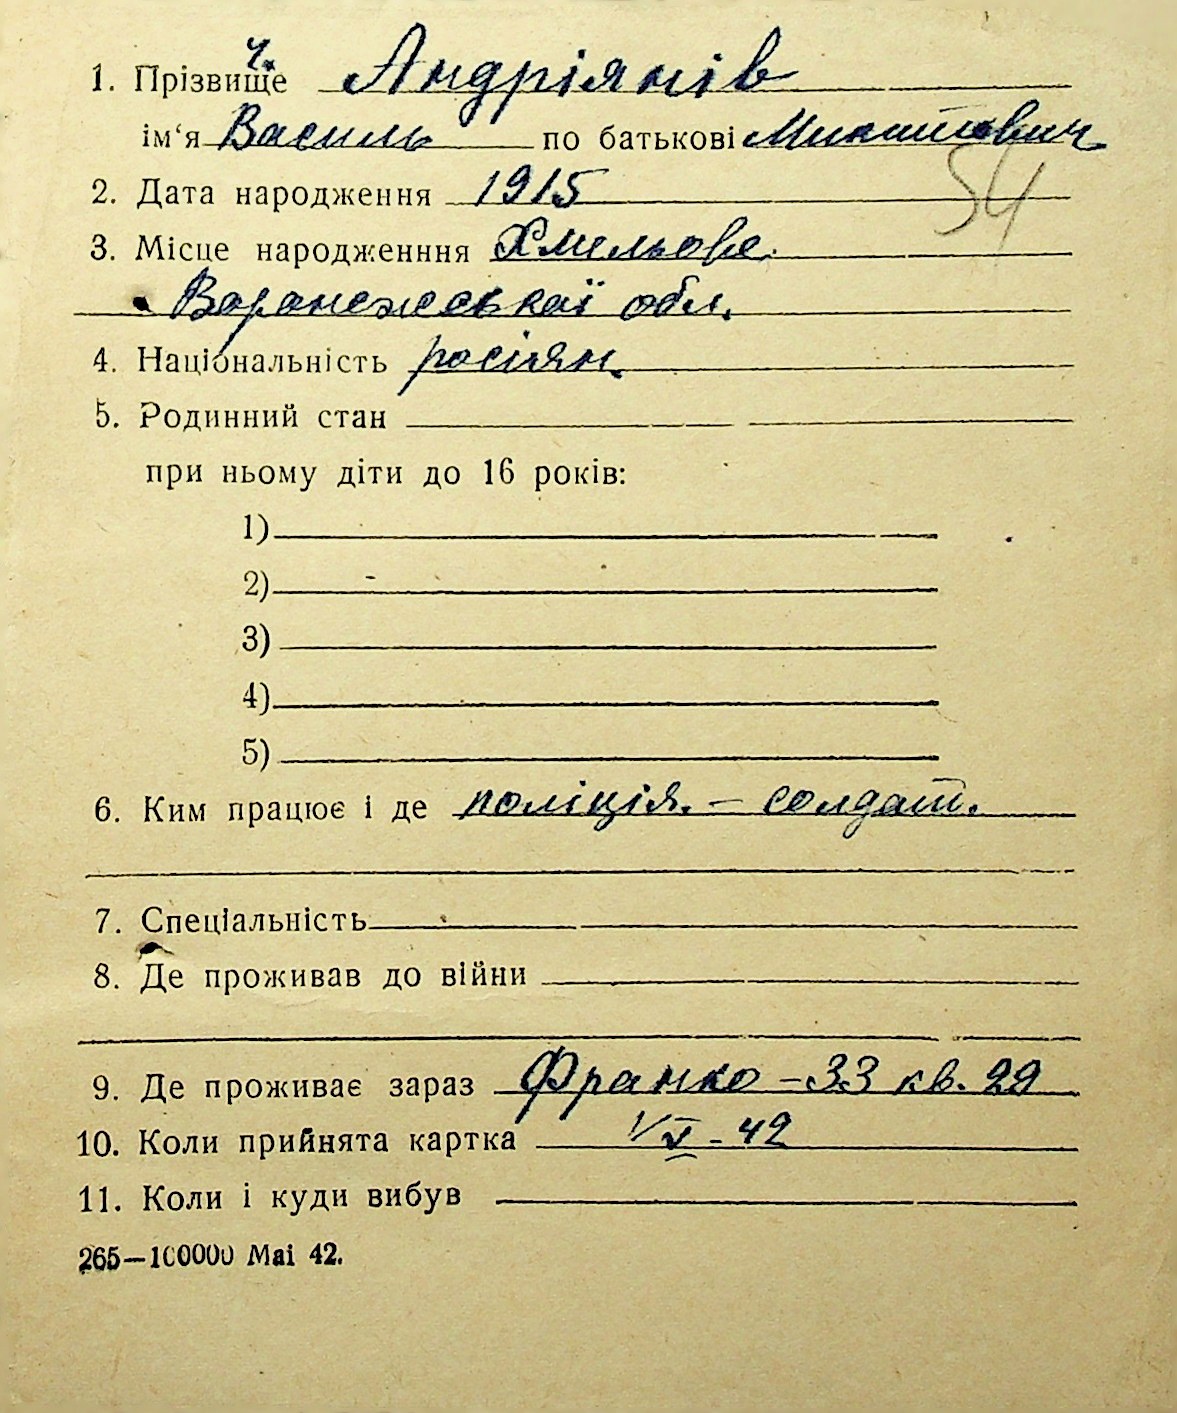 ч.
1. Прізвище Андріянів
ім‘я Василь по батькові Микитович
54
2. Дата народження 1915
3. Місце народженння Хмельове.
Воронежської обл.
4. Національність росіян.
5. Родинний стан
при ньому діти до 16 років:
1)
2)
3)
4)
5)
6. Ким працює і де поліція. – солдат.
7. Спеціальність
8. Де проживав до війни
9. Де проживає зараз Франко – 33 кв. 29
10. Коли прийнята картка V – 42
11. Коли і куди вибув
265—100000 Mai 42.